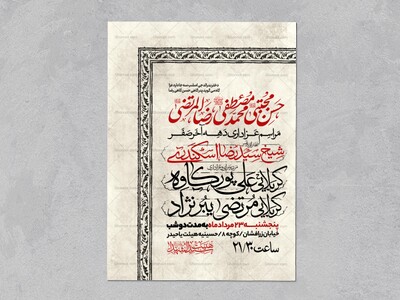 حسن مجتبی محمد مصطفی رضا المرتضی
مراسم عزاداری دهه آخر صفر
شیخ سید رضا اسکندری
کربلائی علی پورکاوه
کربلائی مرتضی ببرنژاد
پنجشنبه ۲۳ مرداد ماه به مدت دو شب
خیابان زرافشان/کوچه ۸/حسینیه هیئت یا حیدر
ساعت ۲۱/۳۰